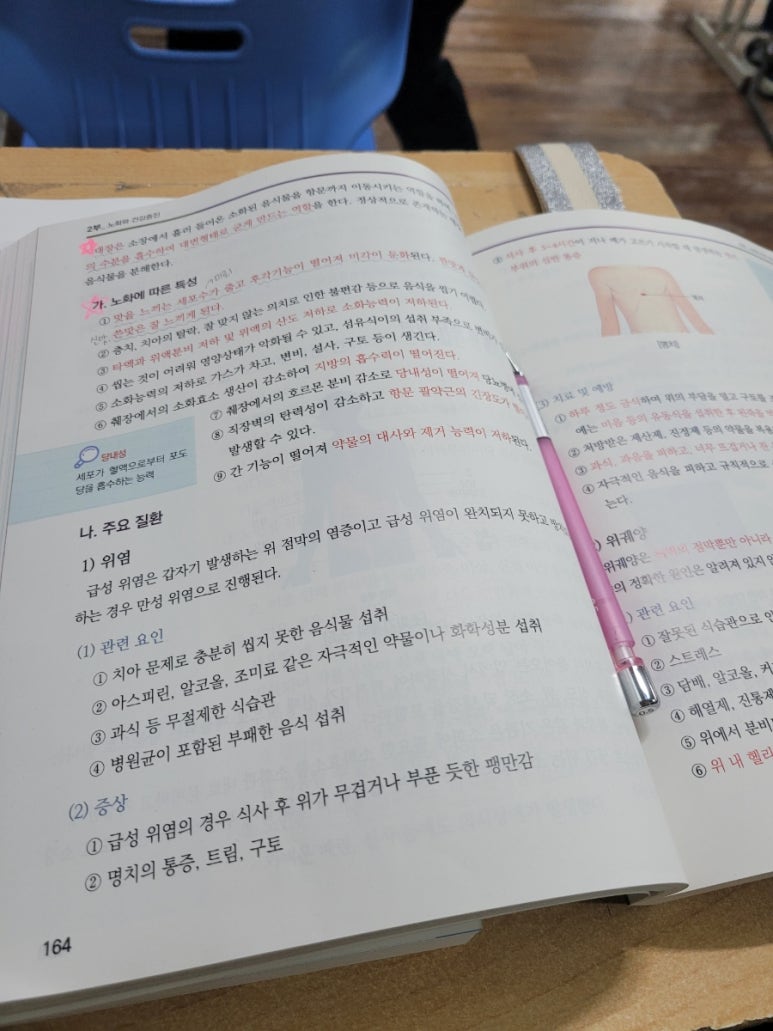 2부_ 노화와 건강증진
대장은 소장에서 흘러 들어온 소화된 음식물을 항문까지 이동시키는 역할을
의 수분을 흡수하여 대변형태로 굳게 만드는 역할을 한다. 정상적으로 존재하는
음식물을 분해한다.
가. 노화에 따른 특성
① 맛을 느끼는 세포수가 줄고 후각기능이 떨어져 미각이 둔화된다.
쓴맛은 잘 느끼게 된다.
② 충치, 치아의 탈락, 잘 맞지 않는 의치로 인한 불편감 등으로 음식을 씹기 어렵다.
③ 타액과 위액분비 저하 및 위액의 산도 저하로 소화능력이 저하된다.
④ 씹는 것이 어려워 영양상태가 악화될 수 있고, 섬유식이의 섭취 부족으로
⑤ 소화능력의 저하로 가스가 차고, 변비, 설사, 구토 등이 생긴다.
⑥ 췌장에서의 소화효소 생산이 감소하여 지방의 흡수력이 떨어진다.
⑦ 췌장에서의 호르몬 분비 감소로 당내성이 떨어져
⑧ 직장벽의 탄력성이 감소하고 항문 괄약근의 긴장도가
발생할 수 있다.
⑨ 간 기능이 떨어져 약물의 대사와 제거 능력이 저하된다.
당내성
세포가 혈액으로부터 포도
당을 흡수하는 능력
나. 주요 질환
1) 위염
급성 위염은 갑자기 발생하는 위 점막의 염증이고 급성 위염이 완치되지 못하고
하는 경우 만성 위염으로 진행된다.
(1) 관련 요인
① 치아 문제로 충분히 씹지 못한 음식물 섭취
② 아스피린, 알코올, 조미료 같은 자극적인 약물이나 화학성분 섭취
③ 과식 등 무절제한 식습관
④ 병원균이 포함된 부패한 음식 섭취
(2) 증상
① 급성 위염의 경우 식사 후 위가 무겁거나 부푼 듯한 팽만감
② 명치의 통증, 트림, 구토
164
③ 식사 후 3~4시간이 지나 배가 고프기 시작할 때
부위의 심한 통증
[명치]
치료 및 예방
① 하루 정도 금식하여 위의 부담을 덜고 구토를
에는 미음 등의 유동식을 섭취한 후
② 처방받은 제산제, 진정제 등의 약물을
③ 과식, 과음을 피하고, 너무 뜨겁거나 찬
④ 자극적인 음식을 피하고 규칙적으로
는다.
) 위궤양
위궤양은 위벽의 점막뿐만 아니라
의 정확한 원인은 알려져 있지
) 관련 요인
① 잘못된 식습관으로
② 스트레스
③ 담배, 알코올,
④ 해열제, 진통제
⑤ 위에서 분비
⑥ 위 내 헬리
0.5